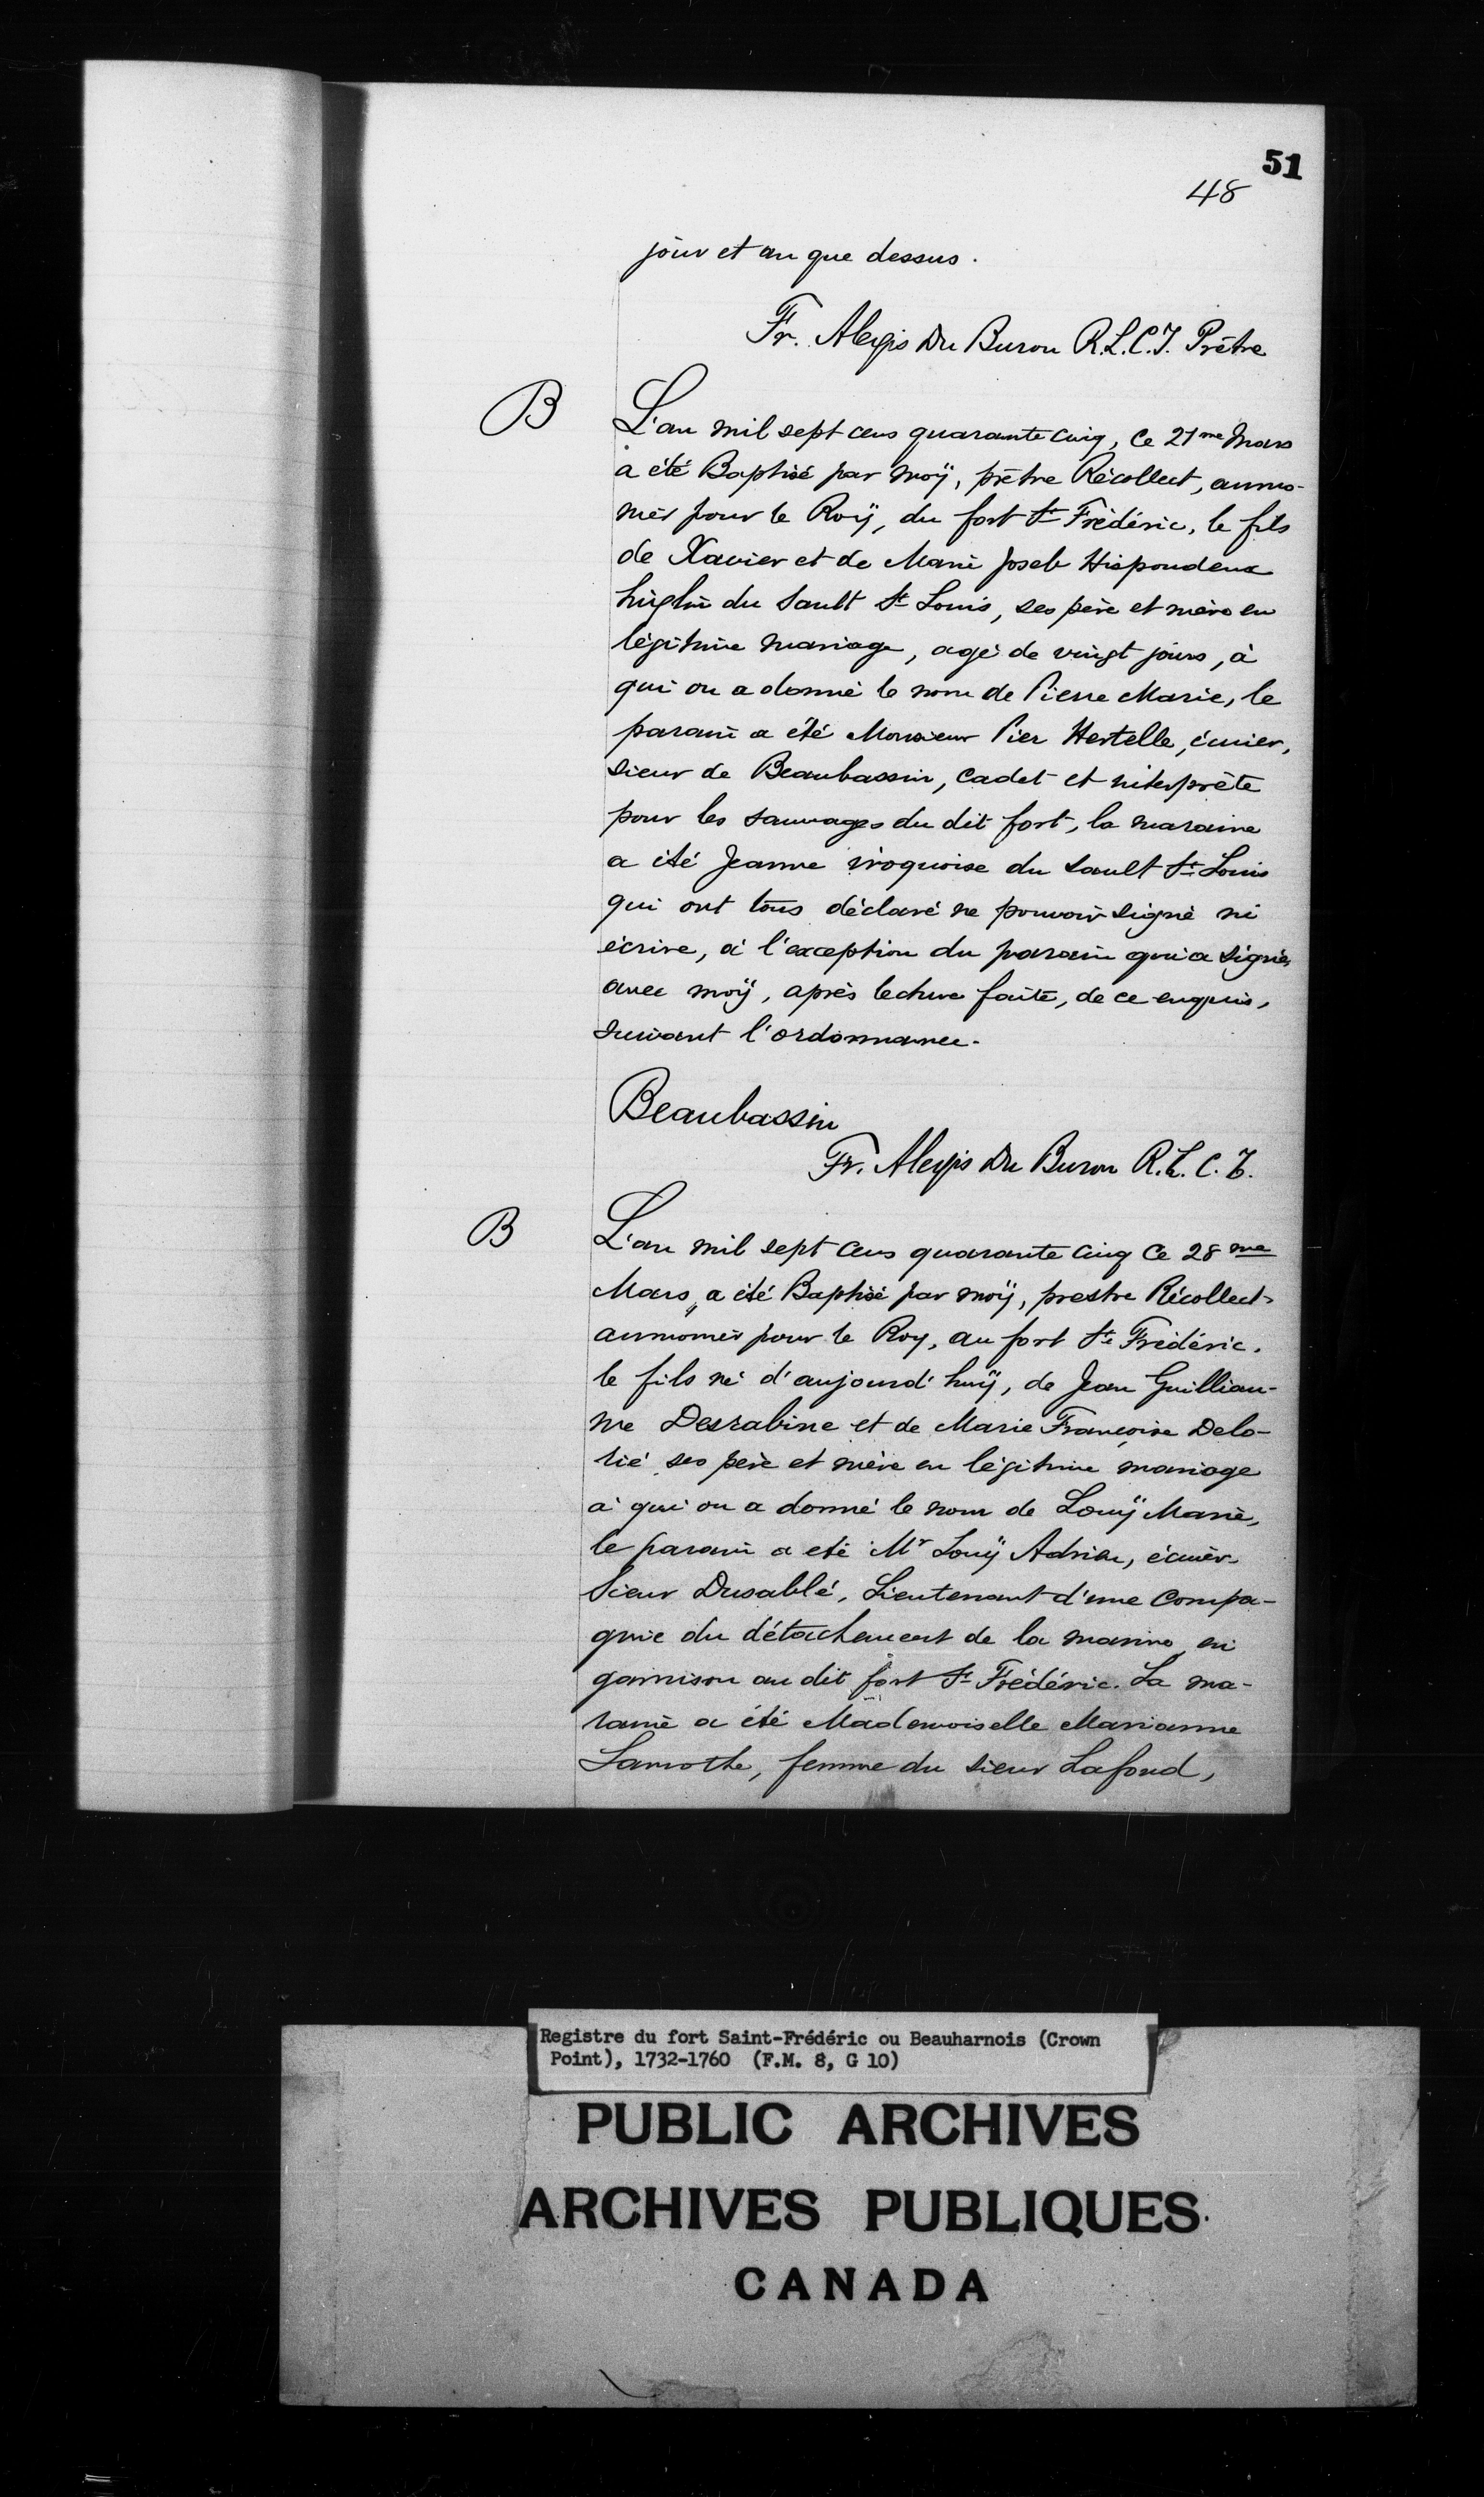 51
48
jour et an que dessus.
Fr. Alexis Du Buron R.L.C.J. Prêtre
B
L'an mil sept cens quarante cinq, ce 21me Mars
a été Baptisé par moÿ, prêtre Récollect, aumo-
nier pour le Roÿ, du fort St Frédéric, le fils
de Xavier et de Marie Joseb
du Sault St Louis, ses père et mère en
légitime mariage, agé de vingt jours, à
qui on a donné le nom de Pierre Marie, le
parain a été Monsieur Pier Hertelle, écuier,
sieur de Beaubassin, cadet et interprète
pour les sauvages du dit fort, la maraine
a été Jeanne iroquoise du Sault St Louis
qui ont tous déclaré ne pouvoir signé ni
écrire, à l'exception du parain qui a signé
avec moÿ, après lecture faite, de ce enquis,
suivant l'ordonnance.
Beaubassin
Fr. Alexis Du Buron R.L.C.J.
B
L'an mil sept cens quarante cinq Ce 28me
Mars, a été Baptisé par moÿ, prestre Récollect
aumonier pour le Roy, au fort St Frédéric.
le fils né d'aujourd'huÿ, de Jean Guilliau-
me Desrabine et de Marie Françoise Delo-
rié ses père et mère en légitime mariage
à qui on a donné le nom de Louÿ Marie,
le parain a eté Mr Louÿ Adrien, écuier
Sieur Dusablé, Lieutenant d'une Compa-
gnie du détachement de la marine en
garnison au dit fort St Frédéric. La ma-
raine a été Mademoiselle Marianne
Lamothe, femme du sieur Lafond,
Registre du fort Saint-Frédéric ou Beauharnois (Crown
Point), 1732-1760 (F.M. 8, G 10)
PUBLIC ARCHIVES
ARCHIVES PUBLIQUES
CANADA